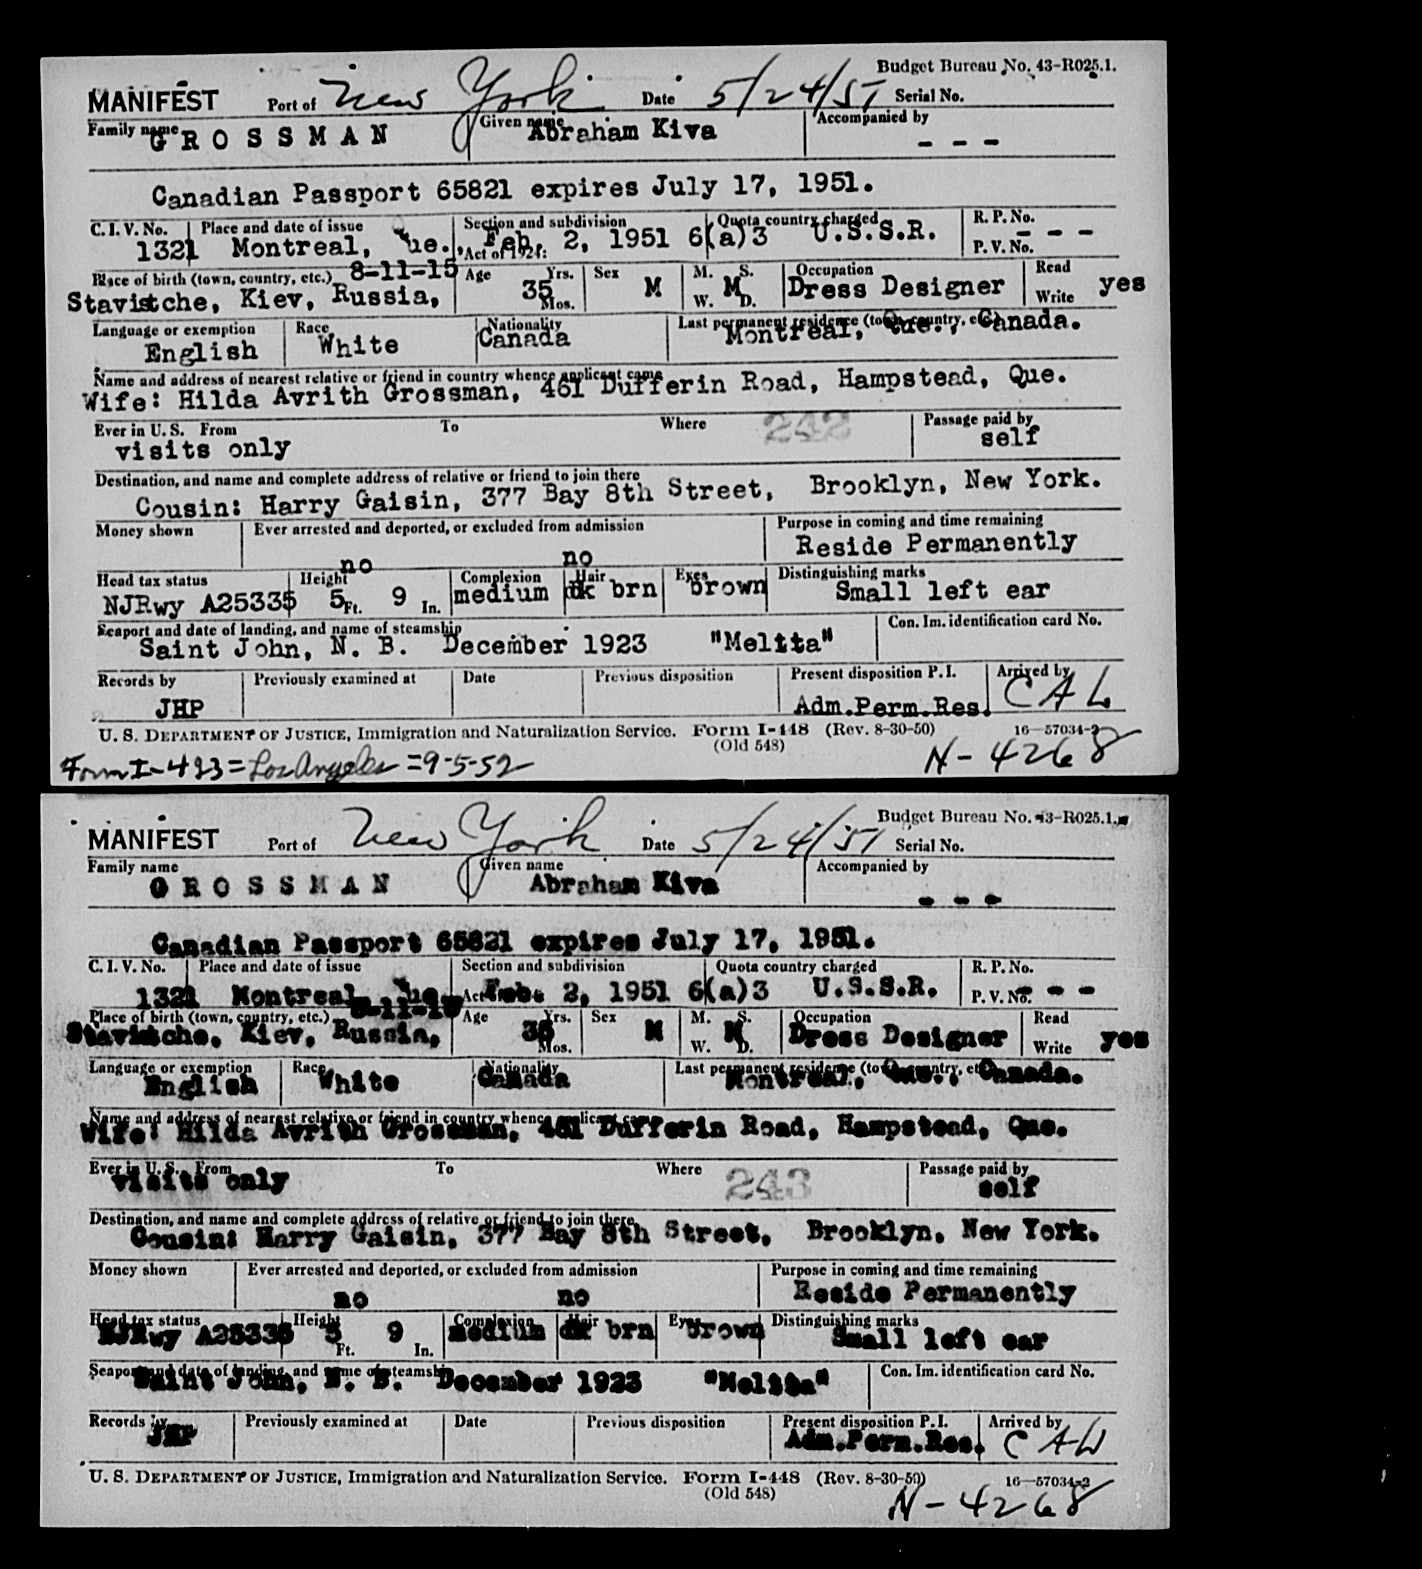 Budget Bureau No. 43-R025.1.
MANIFEST Port of New York Date 5/24/51 Serial No.
Family name GROSSMAN Given name Abraham Kiva Accompanied by - - -
Canadian Passport 65821 expires July 17, 1951.
C. I. V. No. Place and date of issue Section and subdivision Quota country charged R. P. No.
1321 Montreal, Que., Feb. 2, 1951 6(a)3 U.S.S.R. - - -
Act of 1924: P. V. No.
Place of birth (town, country, etc.) 8-11-15 Age Yrs. Sex M. S. Occupation Read
Stavistche, Kiev, Russia, 35 Mos. M M W. D. Dress Designer Write yes
Language or exemption Race Nationality Last permanent residence (town, country, etc.)
English White Canada Montreal, Que., Canada.
Name and address of nearest relative or friend in country whence applicant came
Wife: Hilda Avrith Grossman, 461 Dufferin Road, Hampstead, Que.
Ever in U. S. From To Where 242 Passage paid by
visits only self
Destination, and name and complete address of relative or friend to join there
Cousin: Harry Gaisin, 377 Bay 8th Street, Brooklyn, New York.
Money shown Ever arrested and deported, or excluded from admission Purpose in coming and time remaining
no no Reside Permanently
Head tax status Height Complexion Hair Eyes Distinguishing marks
NJRwy A25335 5 Ft. 9 In. medium dk brn brown Small left ear
Seaport and date of landing, and name of steamship Con. Im. identification card No.
Saint John, N. B. December 1923 "Melita"
Records by Previously examined at Date Previous disposition Present disposition P. I. Arrived by
JHP Adm.Perm.Res. C A L
U. S. DEPARTMENT OF JUSTICE, Immigration and Naturalization Service. Form I-448 (Rev. 8-30-50) 16—57034-2
(Old 548)
N-4268
Form I-433=Los Angeles=9-5-52
Budget Bureau No. 43-R025.1.
MANIFEST Port of New York Date 5/24/51 Serial No.
Family name Given name Accompanied by
GROSSMAN Abraham Kiva - - -
Canadian Passport 65821 expires July 17, 1951.
C. I. V. No. Place and date of issue Section and subdivision Quota country charged R. P. No.
1321 Montreal, Que., Feb. 2, 1951 6(a)3 U.S.S.R. P. V. No. - - -
Place of birth (town, country, etc.) 8-11-15 Age Yrs. Sex M. S. Occupation Read
Stavistche, Kiev, Russia, 35 Mos. M M W. D. Dress Designer Write yes
Language or exemption Race Nationality Last permanent residence (town, country, etc.)
English White Canada Montreal, Que., Canada.
Name and address of nearest relative or friend in country whence applicant came
Wife: Hilda Avrith Grossman, 461 Dufferin Road, Hampstead, Que.
Ever in U. S. From To Where 243 Passage paid by
visits only self
Destination, and name and complete address of relative or friend to join there
Cousin: Harry Gaisin, 377 Bay 8th Street, Brooklyn, New York.
Money shown Ever arrested and deported, or excluded from admission Purpose in coming and time remaining
no no Reside Permanently
Head tax status Height Complexion Hair Eyes Distinguishing marks
NJRwy A25335 5 Ft. 9 In. medium dk brn brown Small left ear
Seaport and date of landing, and name of steamship Con. Im. identification card No.
Saint John, N. B. December 1923 "Melita"
Records by Previously examined at Date Previous disposition Present disposition P. I. Arrived by
JHP Adm.Perm.Res. C A W
U. S. DEPARTMENT OF JUSTICE, Immigration and Naturalization Service. Form I-448 (Rev. 8-30-50) 16—57034-2
(Old 548)
N-4268